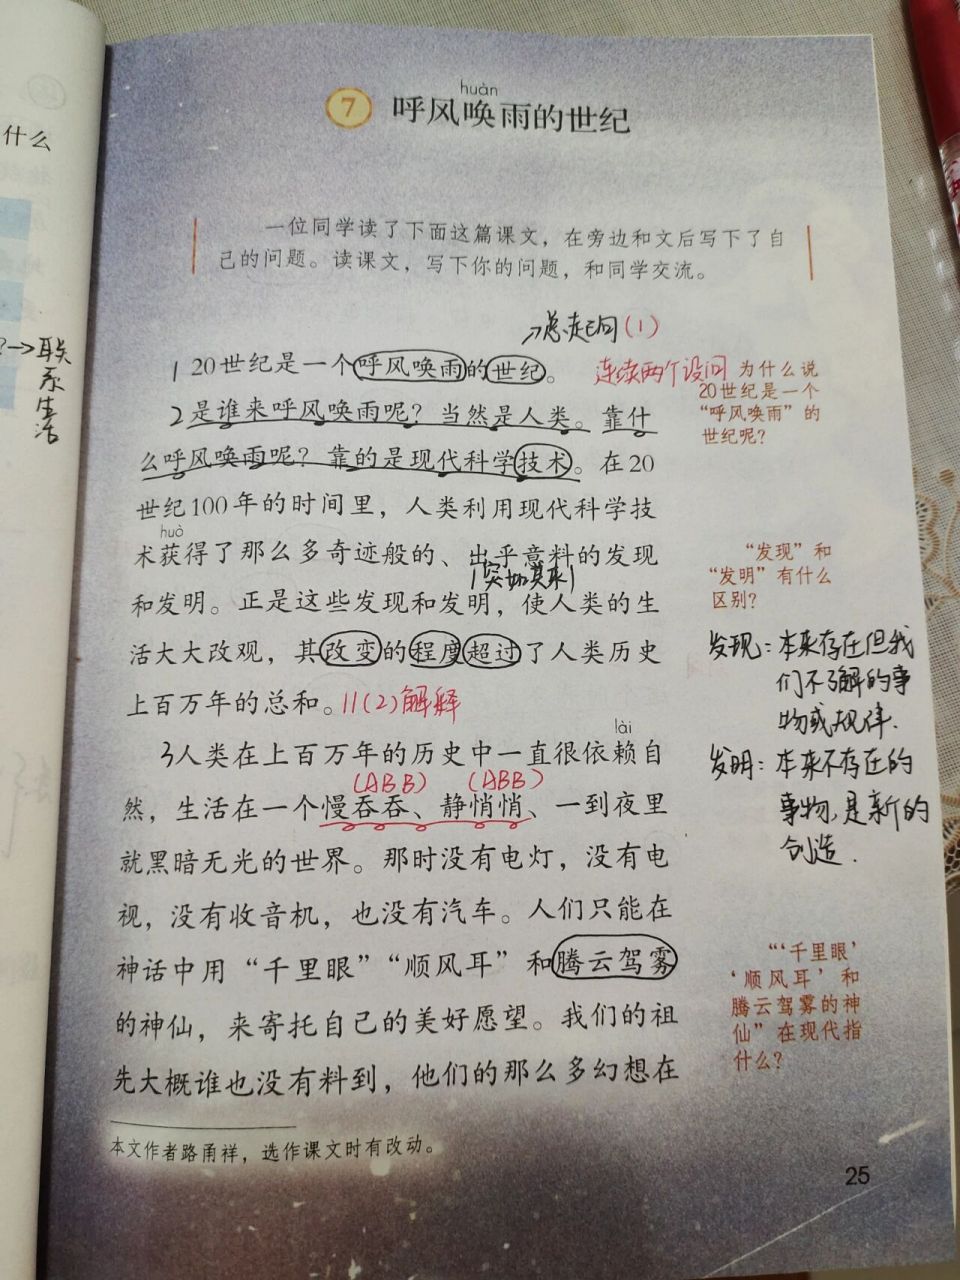 什么
联
系
生
活
huàn
7 呼风唤雨的世纪
一位同学读了下面这篇课文，在旁边和文后写下了自
己的问题。读课文，写下你的问题，和同学交流。
(1)
1 20世纪是一个呼风唤雨的世纪。
连续两个设问
为什么说
20世纪是一个
“呼风唤雨”的
世纪呢？
2是谁来呼风唤雨呢？当然是人类。靠什
么呼风唤雨呢？靠的是现代科学技术。在20
世纪100年的时间里，人类利用现代科学技
huò
术获得了那么多奇迹般的、出乎意料的发现
突如其来
和发明。正是这些发现和发明，使人类的生
活大大改观，其改变的程度超过了人类历史
上百万年的总和。11(2)解释
“发现”和
“发明”有什么
区别？
发现：本来存在但我
们不了解的事
物或规律.
发明：本来不存在的
事物，是新的
创造.
lài
3人类在上百万年的历史中一直很依赖自
(ABB) (ABB)
然，生活在一个慢吞吞、静悄悄、一到夜里
就黑暗无光的世界。那时没有电灯，没有电
视，没有收音机，也没有汽车。人们只能在
神话中用“千里眼”“顺风耳”和腾云驾雾
的神仙，来寄托自己的美好愿望。我们的祖
先大概谁也没有料到，他们的那么多幻想在
“‘千里眼’
‘顺风耳’和
腾云驾雾的神
仙”在现代指
什么？
本文作者路甬祥，选作课文时有改动。
25